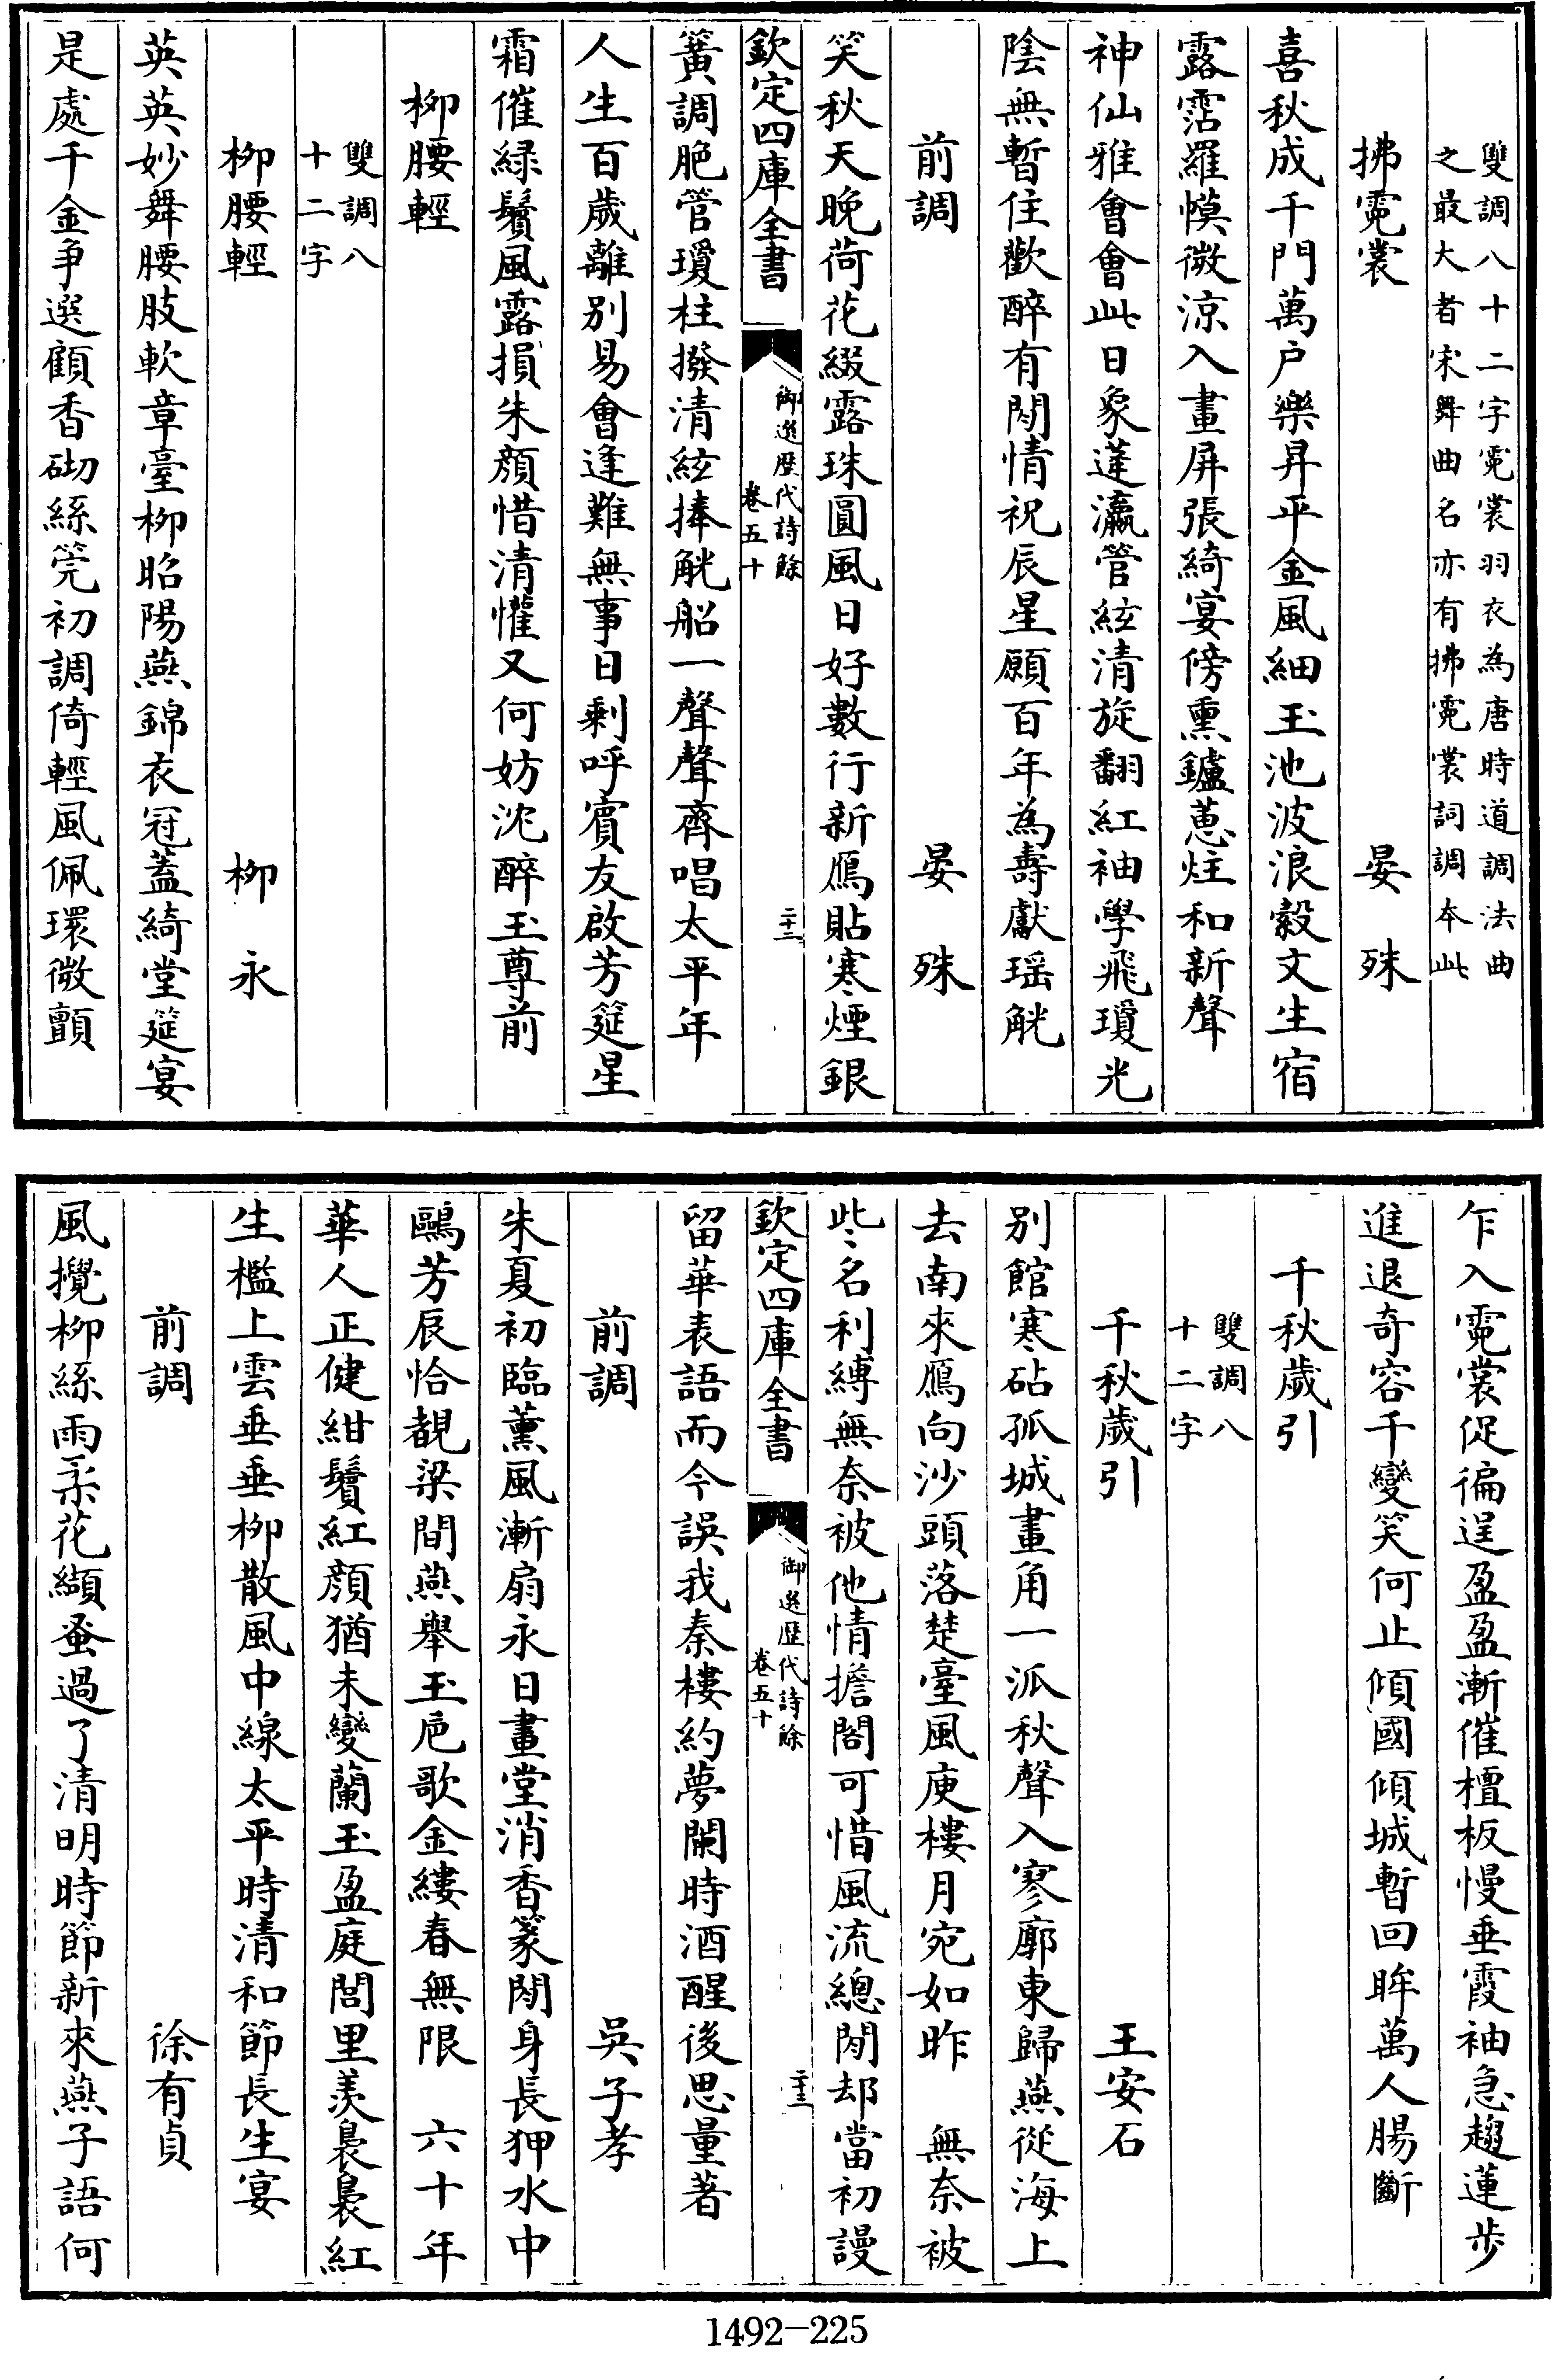 雙調八十二字霓裳羽衣為唐時道調法曲
之最大者宋舞曲名亦有拂霓裳詞調本此
拂霓裳　晏殊
喜秋成千門萬户樂昇平金風細玉池波浪縠文生宿
露霑羅幙微涼入畫屏張綺宴傍熏鑪蕙炷和新聲
神仙雅會會此日象蓬瀛管絃清旋翻紅袖學飛瓊光
陰無暫住歡醉有閒情祝辰星願百年為壽獻瑤觥
前調　晏殊
笑秋天晚荷花綴露珠圓風日好數行新鴈貼寒煙銀
欽定四庫全書　御選歷代詩餘　卷五十　二十二
簧調脆管瓊柱撥清絃捧觥船一聲聲齊唱太平年
人生百歲離别易會逢難無事日剩呼賓友啟芳筵星
霜催緑鬢風露損朱顏惜清懽又何妨沈醉玉尊前
柳腰輕
雙調八
十二字
柳腰輕　柳永
英英妙舞腰肢軟章臺柳昭陽燕錦衣冠蓋綺堂筵宴
是處千金爭選顧香砌絲筦初調倚輕風佩環微顫
乍入霓裳促徧逞盈盈漸催檀板慢垂霞袖急趨蓮步
進退奇容千變笑何止傾國傾城暫回眸萬人腸斷
千秋歲引
雙調八
十二字
千秋歲引　王安石
别館寒砧孤城畫角一派秋聲入寥廓東歸燕從海上
去南來鴈向沙頭落楚臺風庾樓月宛如昨　無奈被
些名利縛無奈被他情擔閣可惜風流總閒却當初謾
欽定四庫全書　御選歷代詩餘　卷五十　二十三
留華表語而今誤我秦樓約夢闌時酒醒後思量著
前調　吳子孝
朱夏初臨薰風漸扇永日畫堂消香篆閒身長狎水中
鷗芳辰恰覩梁間燕舉玉巵歌金縷春無限　六十年
華人正健紺鬢紅顏猶未變蘭玉盈庭閭里羨裊裊紅
生檻上雲垂垂柳散風中線太平時清和節長生宴
前調　徐有貞
風攪柳絲雨柔花纈蚤過了清明時節新來燕子語何
1492-225